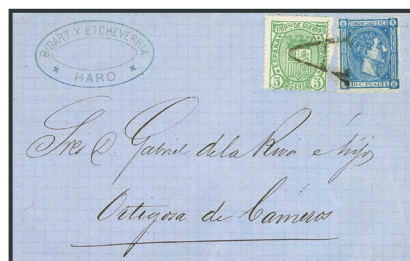 BIDART Y ETCHEVERRIA
HARO
ESPAÑA
5
5
10 C. PESETA
Sres D Gabriel de la Riva e hijo
Ortigosa de Cameros